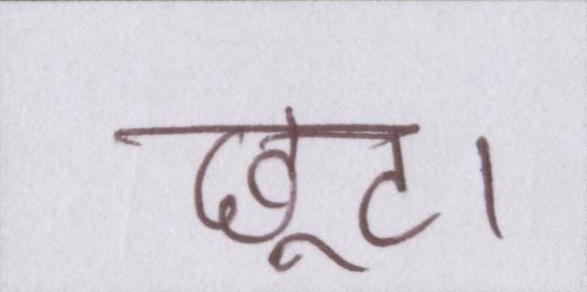 छूट।